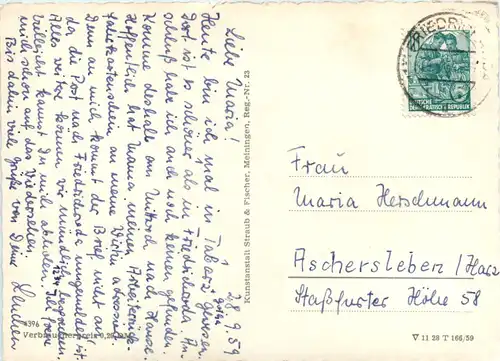 28.9.59
Liebe Maria!
Heute bin ich mal in Tabarz gewesen.
Dort ist es schöner als in Friedrichroda. An-
schluß habe ich auch noch keinen gefunden.
Komme deshalb am Mittwoch nach Hause.
Hoffentlich hat Mama meinen
an meine Wirtin adressiert.
Denn an mich kommt der Brief nicht an
da die Post nach Friedrichroda umgemeldet ist.
Alles weitere können wir mündlich
Vielleicht kannst Du mich abholen. Ich freue
mich schon auf das Wiedersehen.
Bis dahin viele Grüße von Deine
Kunstanstalt Straub & Fischer, Meiningen, Reg.-Nr. 23
Verbraucherpreis 0,20
FRIEDRICH
DEUTSCHE
DEMOKRATISCHE REPUBLIK
Frau
Maria Herschmann
Aschersleben / Harz
Staßfurter Höhe 58
V 11 28 T 166/59